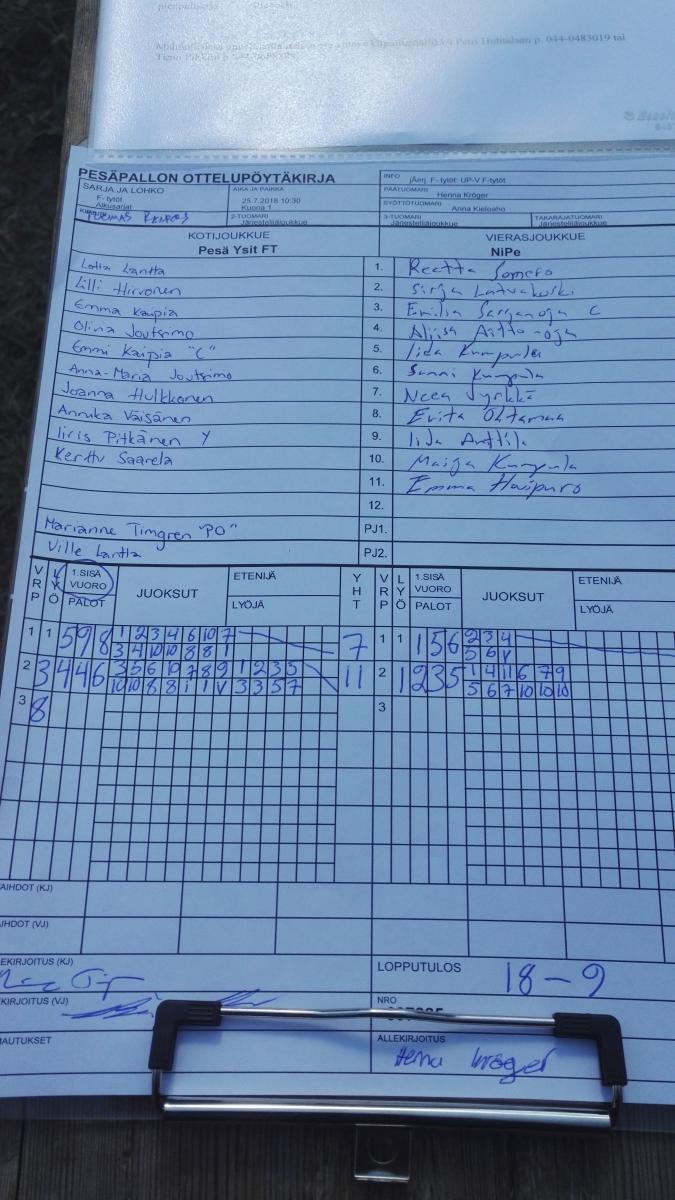 p. 044-0483019 tai
PESÄPALLON OTTELUPÖYTÄKIRJA
SARJA JA LOHKO
F- tytöt
Alkusarjat
AIKA JA PAIKKA
25.7.2018 10:30
Kuona 1
2-TUOMARI
Järjestelijäjoukkue
INFO jÄerj. F- tytöt: UP-V F-tytöt
PÄÄTUOMARI
Henna Kröger
SYÖTTÖTUOMARI
Anna Kieloaho
3-TUOMARI
Järjestelijäjoukkue
TAKARAJATUOMARI
Järjestelijäjoukkue
KOTIJOUKKUE
Pesä Ysit FT
VIERASJOUKKUE
NiPe
Lotta Lantta 1. Reetta Somero
Lilli Hirvonen 2. Sirja
Emma Kaipia 3. Emilia C
Olina Joutsimo 4.
Emmi Kaipia "C" 5. Iida Kumpula
Anna-Maria Joutsimo 6. Sanni Kumpula
Joanna Hulkkonen 7. Neea Jyrkkä
Annika Väisänen 8.
Iiris Pitkänen Y 9. Iida Anttila
Kerttu Saarela 10. Maija Kumpula
11. Emma Haipuro
12.
Marianne Timgren "PO" PJ1.
Ville Lantta PJ2.
VRP LYÖ 1.SISÄ VUORO PALOT JUOKSUT ETENIJÄ LYÖJÄ YHT VRP LYÖ 1.SISÄ VUORO PALOT JUOKSUT ETENIJÄ LYÖJÄ
1 1 5 9 8 1 2 3 4 6 10 7 7 1 1 1 5 6 2 3 4
3 4 10 10 8 8 1 5 6 V
2 3 4 4 6 3 5 6 10 7 8 9 1 2 3 5 11 2 1 2 3 5 1 4 11 6 7 9
10 10 8 8 1 1 V 3 3 5 7 5 6 7 10 10 10
3 8 3
AIHDOT (KJ)
IHDOT (VJ)
EKIRJOITUS (KJ)
LOPPUTULOS 18-9
KIRJOITUS (VJ)
NRO
AUTUKSET
ALLEKIRJOITUS
Henna Kröger